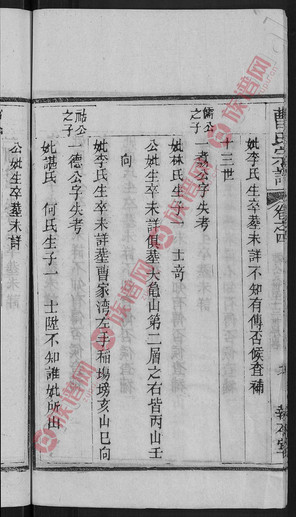 曹氏宗譜 卷之四
妣李氏生卒墓未詳不知有傳否候查補
十三世
儒公之子
一勲公字失考
妣林氏生子一 士奇
公妣生卒未詳俱墓大亀山第二層之右皆丙山壬
向
妣李氏生卒未詳墓曹家湾左手稻塲塝亥山巳向
祜公之子
一德公字失考
妣諶氏 何氏生子一 士陞不知誰妣所出
公妣生卒墓未詳
族譜网